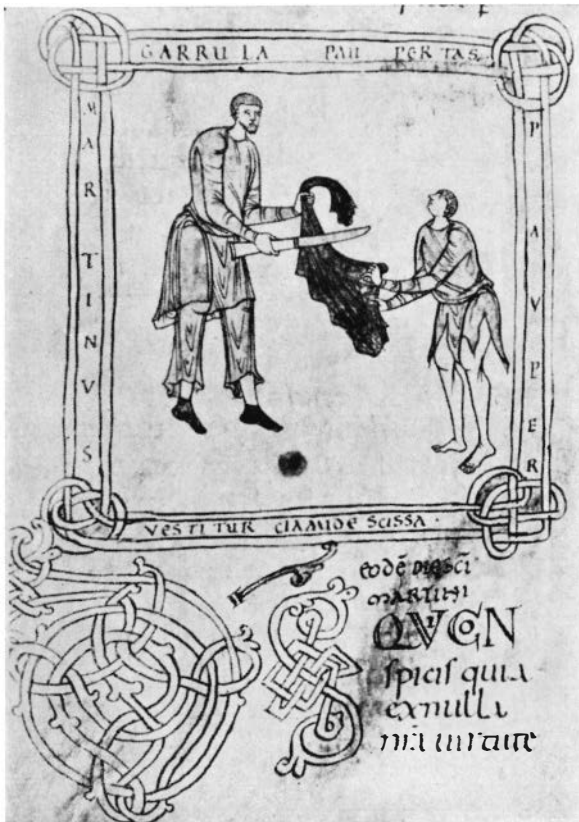 GARRULA PAU PERTAS
MARTINVS
PAVPER
VESTITUR CLAMIDE SCISSA ·
eodē die scī
MARTINI
QVICON
spicis quia
ex nulla
nrā uirtute